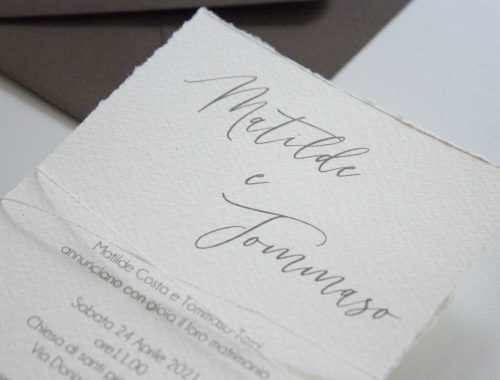 Matilde
e
Tommaso
Matilde Costa e Tommaso
annunciano con gioia il loro matrimonio
Sabato 24 Aprile 2021
ore11.00
Chiesa di santi
Via